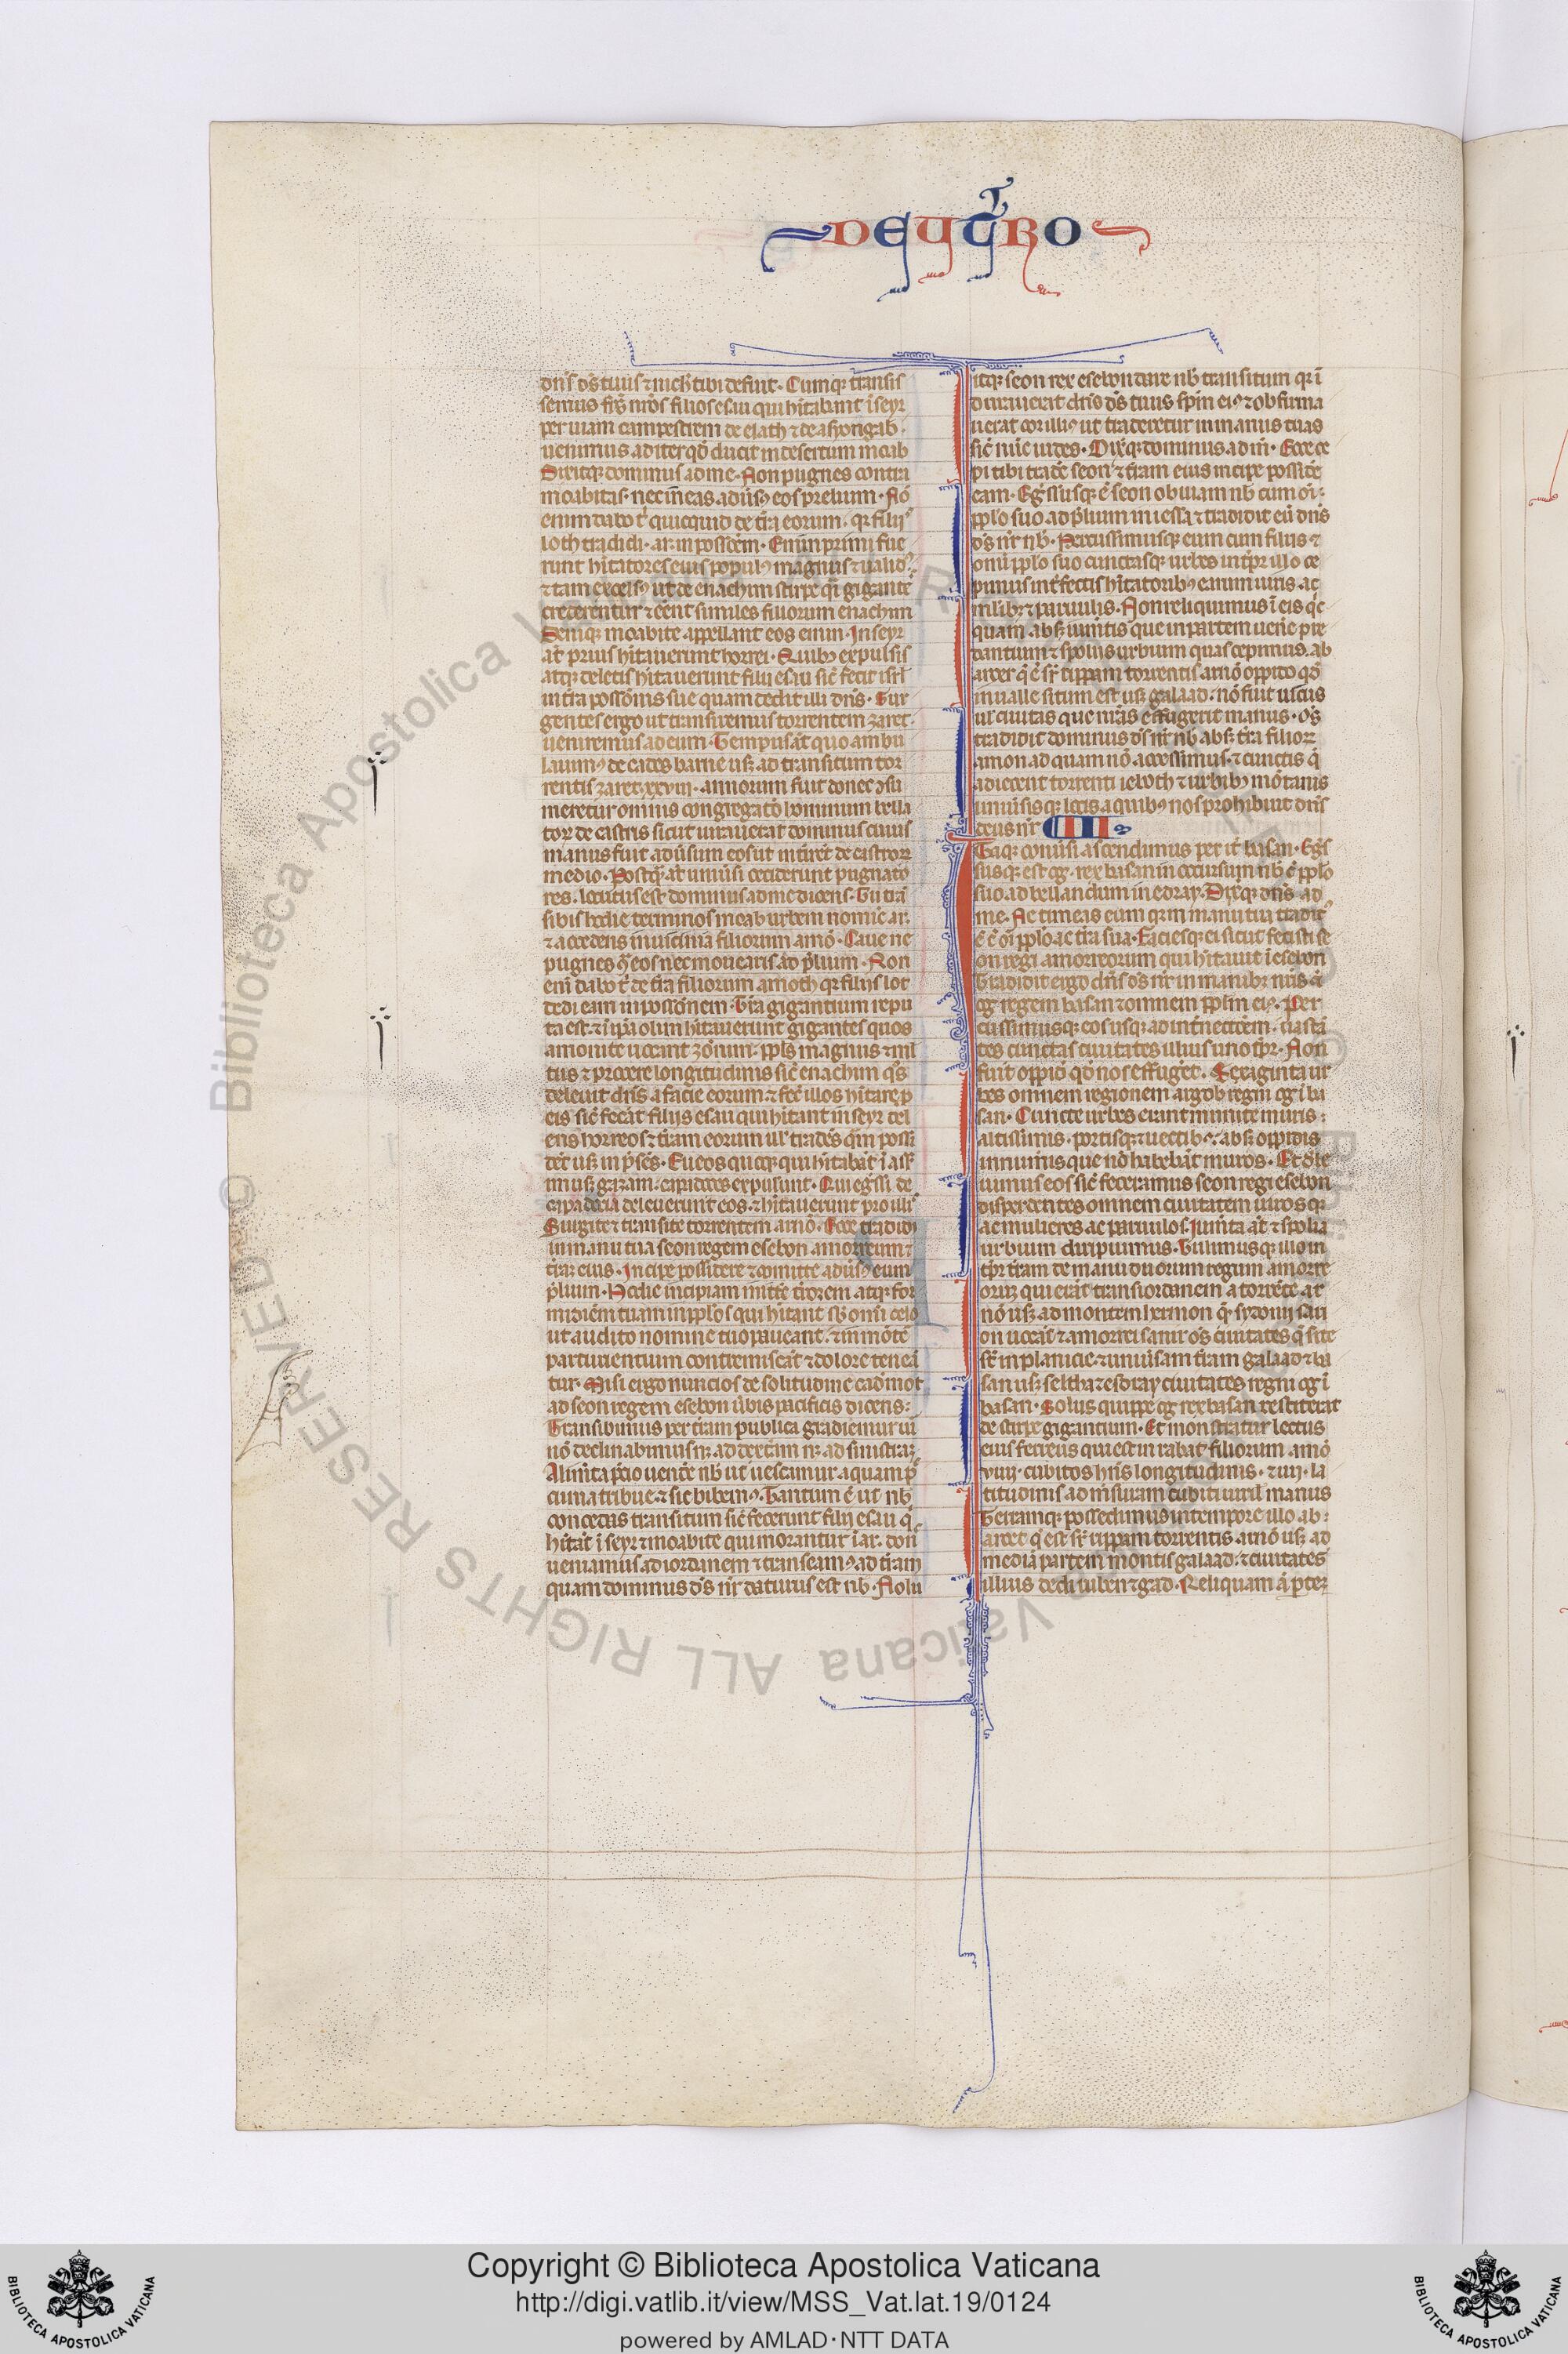 DEUTRO
dn̄s ds̄ tuus ⁊ nich̄ tibi defuit. Cumq; transis
semus frēs nr̄os filios esau qui hītabant ī seyr
per uiam campestrem de elath ⁊ de asyongab.
uenimus ad iter qd̄ ducit in desertum moab
Dixitq; dominus ad me. Non pugnes contra
moabitas. nec in eas aduīs; eos prelium. Nō
enim dabo t̄ quicquid de tr̄a eorum. qr filiis
loth tradidi. ar. in possōem. Emim primi fue
runt hītatores eius popul9 magnus ⁊ ualid9.
⁊ tam excels9 ut de enachim stirpe qi gigante
crederentur ⁊ eēnt similes filiorum enachim
Deniq; moabite appellant eos emim. In seyr
at̄ prius hītauerunt horrei. Quib9 expulsis
atq; deletis hītauerunt filii esau sic̄ fecit isrl̄
in tr̄a possōnis sue quam dedit illi dn̄s. Sur
gentes ergo ut transiremus torrentem zaret.
uenimus ad eum. Tempus at̄ quo ambu
lauim9 de cades barne usq; ad transitum tor
rentis zaret xxxviii. annorum fuit donec ɔsu
meretur omnis congregatō hominum bella
tor; de castris sicut iurauerat dominus cuius
manus fuit aduīsum eos ut intīret de castror;
medio. Postq; at̄ uniuīsi ceciderunt pugnato
res. locutus est dominus ad me dicens. Tu tr̄ā
sibis hodie terminos moab urbem nomīe ar.
⁊ accedens in uicinia filiorum amō. Caue ne
pugnes ɔ̄ eos nec mouearis ad p̄lium. Non
eni dabo t̄ de tr̄a filiorum amoth qr filiis lot
dedi eam in possōnem. Tr̄a gigantium repu
ta est. ⁊ ī ip̄a olim hītauerunt gigantes quos
amonite uocant zōmim. ppl̄s magnus ⁊ ml̄
tus ⁊ procere longitudinis sic̄ enachim qs̄
deleuit dn̄s a facie eorum. ⁊ fec̄ illos hītare p
eis sic̄ fecat filiis esau qui hītant in seyr del
ens horreos ⁊ tr̄am eorum ill̄ tradēs qm̄ possi
det̄ usq; in p̄sēs. Eueos quoq; qui hītabāt ī ass̄
im usq; gazam. capadoces expulsunt. Qui egissi de
capadocia deleuerunt eos. ⁊ hītauerunt pro illis
Surgite ⁊ transite torrentem arnō. Ecce tradidi
in manu tua seon regem esebon amorreum ⁊
tr̄am eius. Incipe possidere ⁊ cōmitte aduīs9 eum
p̄lium. Hodie incipiam mitt̄e t̄rorem atq; for
midiem tuam in ppl̄os qui hītant sb̄ omī celo
ut audito nomine tuo paueant. ⁊ in mōte
parturientium contremiscāt ⁊ dolore teneā
tur. Misi ergo nuncios de solitudine cadimot
ad seon regem esebon ūbis pacificis dicens:
Transibimus per tr̄am publica gradiemur uī
nō declinabimus nq; ad dextram nq; ad sinistram.
Alimta p̄cio uende nb̄ ut uescamur aquam p̄
cunia tribue. ⁊ sic bibem9. Tantum ē ut nb̄
concedas transitum sic̄ fecerunt filii esau q̄
hītāt ī seyr ⁊ moabite qui morantur ī ar. don
ueniamus ad iordanem ⁊ transeam9 ad tr̄am
quam dominus ds̄ nr̄ daturus est nb̄. Nolu
itq; seon rex esebon dare nb̄ transitum qr ī
durauerat dn̄s ds̄ tuus sp̄m ei9 ⁊ obfirma
uerat cor illi9 ut traderetur in manus tuas
sic̄ nūc uides. Dixitq; dominus ad m̄. Ecce ce
pi tibi tradē seon ⁊ tr̄am eius incipe possidē
eam. Egr̄ssusq; ē seon obuiam nb̄ cum oī.
pplo suo ad p̄lium in iessa ⁊ tradidit eū dn̄s
ds̄ nr̄ nb̄. Percussimusq; eum cum filiis ⁊
omi pplo suo cunctasq; urbes in tp̄r illo ce
pimus int̄fectis hītatorib9 earum uiris. ac
mlib; ⁊ paruulis. Non reliquimus ī eis qc̄
quam. absq; iumtis que in partem uenē pre
dantium ⁊ spoliis urbium quas cepimus. ab
aroer q̄ ē sr̄ rippam torrentis arnō oppido qd̄
in ualle situm est usq; galaad. nō fuit uicus
ul̄ ciuitas que nrās effugerit manus. Os̄
tradidit dominus ds̄ nr̄ nb̄ absq; tr̄a filior;
amon ad quam nō accessimus. ⁊ cunctis q̄
adiacent torrenti ieboch ⁊ urbib9 mōtanis
uniuīsisq; locis. a quib9 nos prohibuit dn̄s
deus nr̄ III
Itaq; conuīsi ascendimus per it̄ basan. Egr̄s
susq; est og. rex basan in occursum nb̄ c̄ pplo
suo. ad bellandum in edray. Dixitq; dn̄s ad
me. Ne timeas eum qr in manu tua tradit9
ē c̄ oī pplo. ac tr̄a sua. Faciesq; ei sicut fecisti se
on regi amorreorum qui hītauit ī esebon
Tradidit ergo dn̄s ds̄ nr̄ in manib; nris ā
og regem basan ⁊ omnem pplm ei9. Per
cussimusq; eos usq; ad int̄nectōem. uastā
tes cunctas ciuitates illius uno tp̄r. Non
fuit oppidū qd̄ nos effuget̄. Sexaginta ur
bes omnem regionem argob regni og ī ba
san. Cuncte urbes erant munite muris:
altissimis. portisq; ⁊ uectib9. absq; oppidis
innumis que nō habebāt muros. Et dele
uimus eos sic̄ feceramus seon regi esebon
disperdentes omnem ciuitatem uirosq;
ac mulieres ac paruulos. Iumta at̄ ⁊ spolia
urbium diripuimus. Tulimusq; illo in
tp̄r tr̄am de manu duorum regum amorre
orum; qui erāt trans iordanem a torrēte ar
nō usq; ad montem hermon q̄. sydonii sari
on uocāt ⁊ amorrei sanir os̄ ciuitates q̄ site
sūt in planicie. ⁊ uniuīsam tr̄am galaad ⁊ ba
san usq; selcha ⁊ esdray ciuitates regni og ī
basan. Solus quippe og rex basan restiterat
de stirpe gigantium. Et monstratur lectus
eius ferreus qui est in rabat filiorum amō
viiii. cubitos hn̄s longitudinis. ⁊ iiii. la
titudinis ad mīsuram cubiti uiril̄ manus
Terramq; possedimus in tempore illo ab:
aroer q̄ est sr̄ rippam torrentis. arnō usq; ad
mediā partem montis galaad. ⁊ ciuitates
illius dedi ruben ⁊ gad. Reliquam ā p̄tem
Copyright © Biblioteca Apostolica Vaticana
http://digi.vatlib.it/view/MSS_Vat.lat.19/0124
powered by AMLAD·NTT DATA
BIBLIOTECA APOSTOLICA VATICANA
BIBLIOTECA APOSTOLICA VATICANA
© Biblioteca Apostolica Vaticana ALL RIGHTS RESERVED